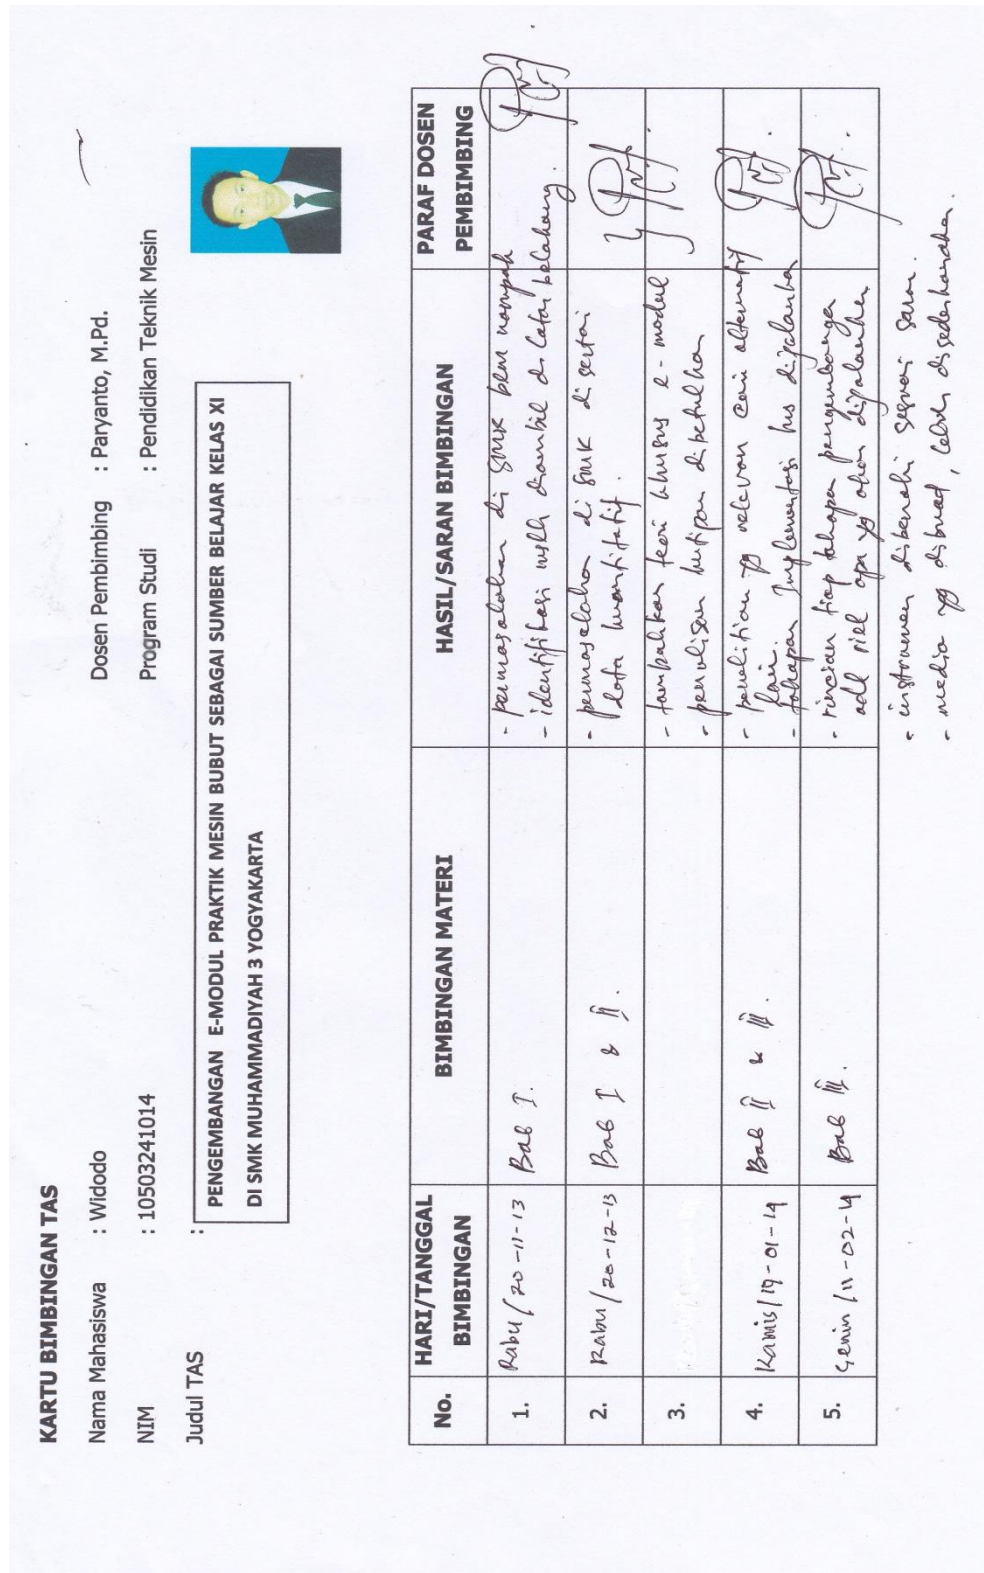 KARTU BIMBINGAN TAS
Nama Mahasiswa : Widodo Dosen Pembimbing : Paryanto, M.Pd.
NIM : 10503241014 Program Studi : Pendidikan Teknik Mesin
Judul TAS :
PENGEMBANGAN E-MODUL PRAKTIK MESIN BUBUT SEBAGAI SUMBER BELAJAR KELAS XI
DI SMK MUHAMMADIYAH 3 YOGYAKARTA
No. HARI/TANGGAL BIMBINGAN BIMBINGAN MATERI HASIL/SARAN BIMBINGAN PARAF DOSEN PEMBIMBING
1. Rabu / 20-11-13 Bab I. - permasalahan di SMK blm nampak
- identifikasi mslh diambil di latar belakang.
2. Rabu / 20-12-13 Bab I & II. - permasalahan di SMK disertai
data kuantitatif.
3. - tambahkan teori khusus e-modul
- penulisan kutipan dibetulkan
4. Kamis / 19-01-14 Bab II & III. - penelitian yg relevan cari alternatif
lain.
- tahapan Implementasi hrs dijalankan
5. Senin / 11-02-14 Bab III. - rincian tiap tahapan pengembangan
adl riel apa yg akan dijalankan
- instrumen dibenahi sesuai saran.
- media yg dibuat, disederhanakan.